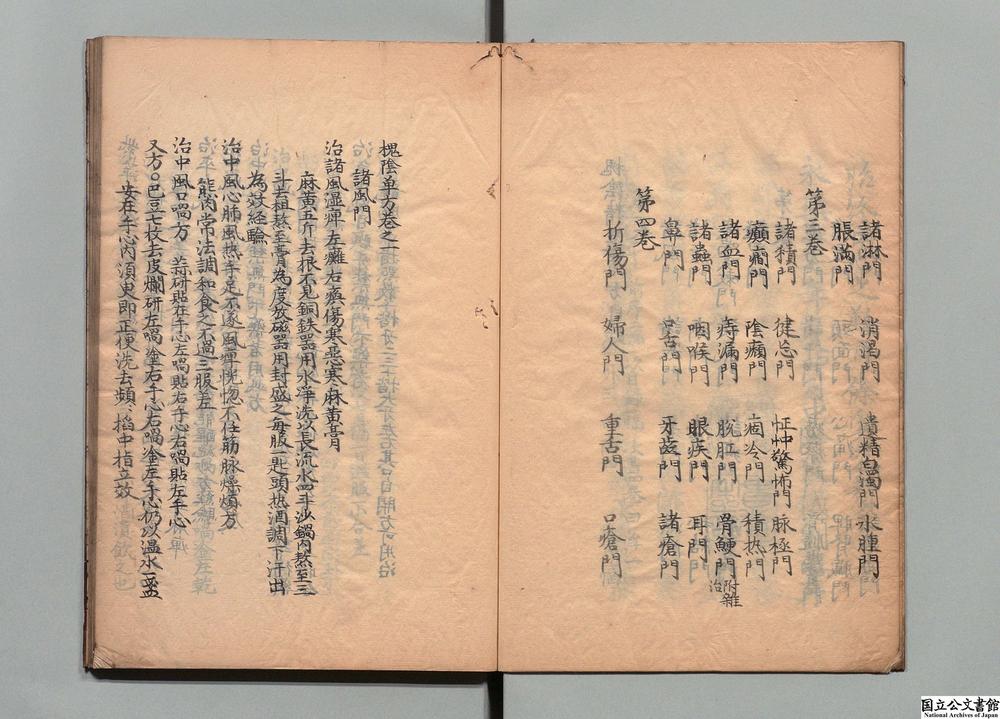 諸淋門 消渴門 遺精白濁門 水腫門
脹滿門
第三巻
諸積門 健忘門 怔忡驚怖門 脉極門
癲癎門 陰㿗門 痼冷門 積热門
諸血門 痔漏門 脱肛門 骨鯁門 附雜治
諸蟲門 咽喉門 眼疾門 耳門
鼻門 口舌門 牙齒門 諸瘡門
第四巻
折傷門 婦人門 重舌門 口瘡門
槐陰单方卷之一
諸風門
治諸風湿痺左癱右瘓傷寒惡寒麻黄膏
麻黄五斤去根不見銅鉄器用水淨洗以長流水四斗沙鍋内熬至三
斗去柤熬至膏為度放磁器用封盛之每服一匙頭热酒調下汗出
為效経驗
治中風心肺風热手足不遂風痺恍惚不任筋脉燥煩方
熊肉常法調和食之不過三服差
治中風口喎方 蒜研貼在手心左喎貼右手心右喎貼左手心
又方〇巴豆七枚去皮爛研左喎塗右手心右喎塗左手心仍以温水一盃
安在手心内須臾即正便洗去頻〻搯中指立效
国立公文書館
National Archives of Japan